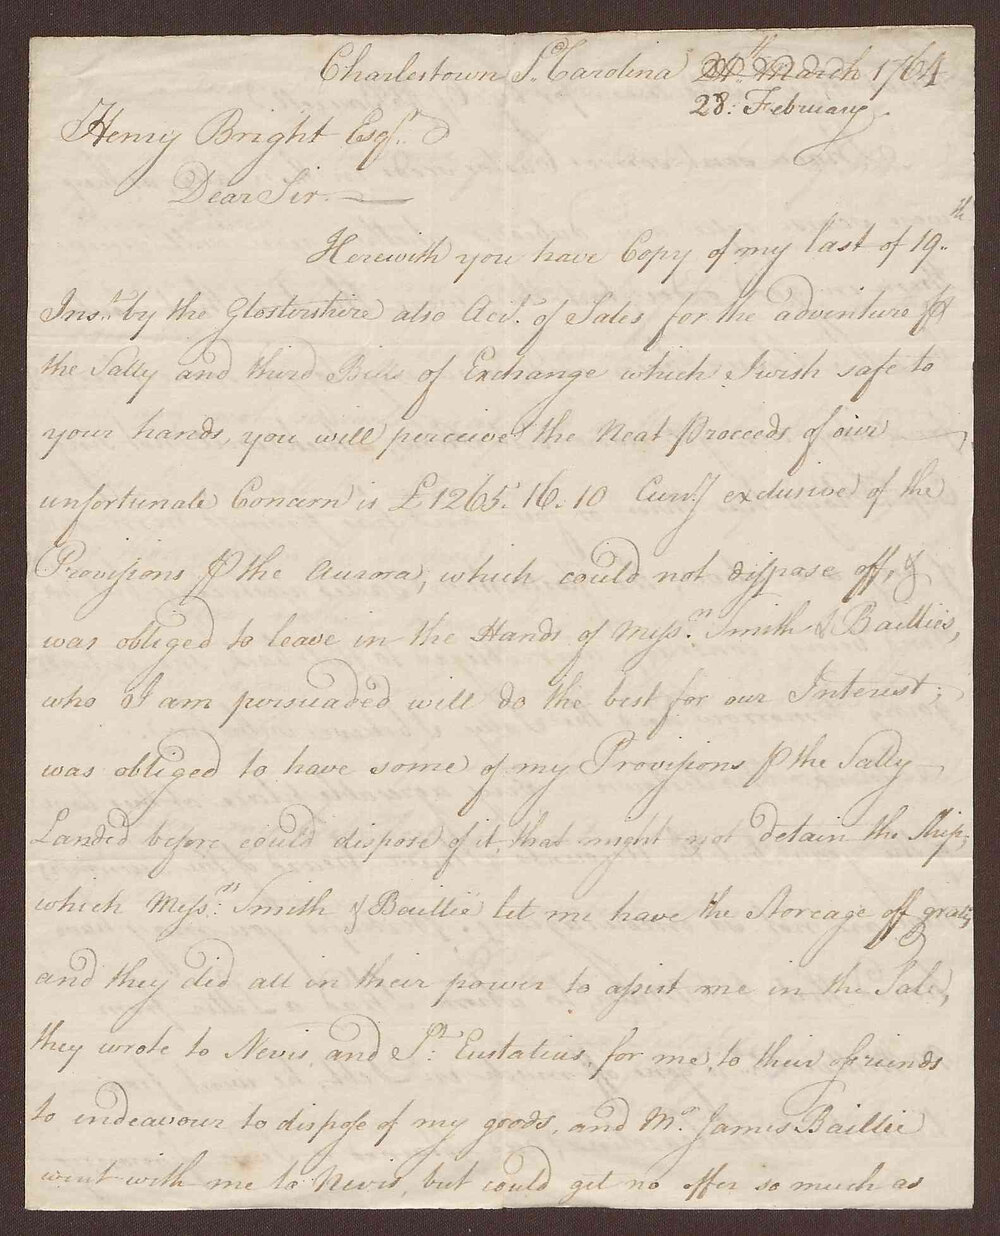 Charlestown So. Carolina 24th March 1764
28. February
Henry Bright Esqr.
Dear Sir.
Herewith you have Copy of my last of 19th
Inst. by the Glostershire also Acct. of Sales for the adventure ⅌
the Sally and third Bills of Exchange which I wish safe to
your hands, you will perceive the Neat Proceeds of our
unfortunate Concern is £1265.16.10 Curry. exclusive of the
Provisions ⅌ the Aurora, which could not dispose off, &
was obliged to leave in the Hands of Messrs. Smith & Baillies,
who I am persuaded will do the best for our Interest.
was obliged to have some of my Provisions ⅌ the Sally
Landed before could dispose of it, that might not detain the Ship,
which Messrs. Smith & Baillie let me have the Storeage off gratis,
and they did all in their power to assist me in the Sale,
they wrote to Nevis and St. Eustatius, for me, to their ffriends
to endeavour to dispose of my goods, and Mr. James Baillie
went with me to Nevis, but could get no offer so much as